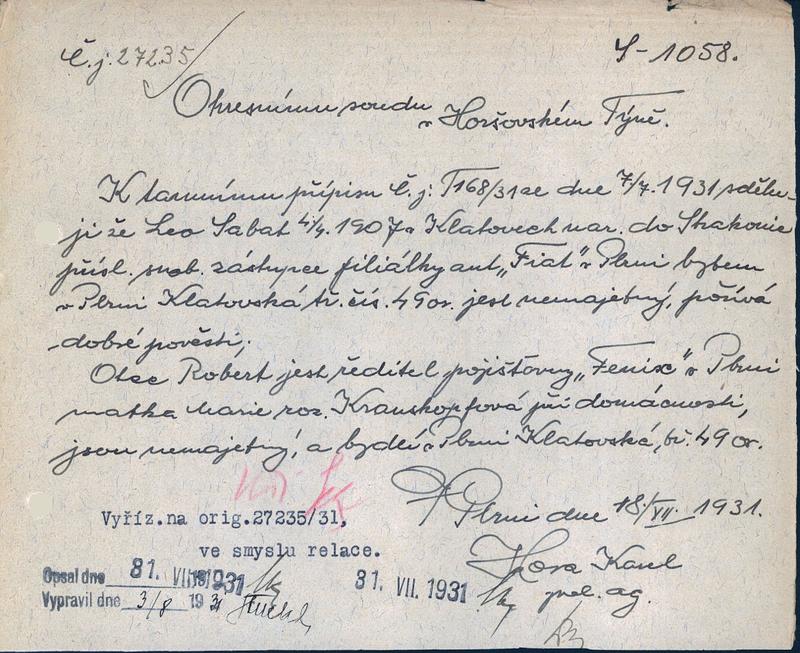 Č.j. 27235/
S-1058.
Okresnímu soudu
v Horšovském Týně.
K tamnímu přípisu Č.j: T168/31 ze dne 7/7. 1931 sdělu-
ji že Leo Sabat 4/4. 1907 v Klatovech nar. do Strakonic
přísl. svob. zástupce filiálky aut „Fiat" v Plzni bytem
v Plzni Klatovská tř. čís. 49 or. jest nemajetný, požívá
dobré pověsti,
Otec Robert jest ředitel pojišťovny „Fenix" v Plzni
matka Marie roz. Krauskopfová při domácnosti,
jsou nemajetný, a bydlí v Plzni Klatovská, tř. 49 or.
V Plzni dne 18./VII. 1931.
Vyříz.na orig.27235/31,
ve smyslu relace.
Karel
pol. ag.
Opsal dne 31. VII. 1931
31. VII. 1931
Vypravil dne 3/8 1931